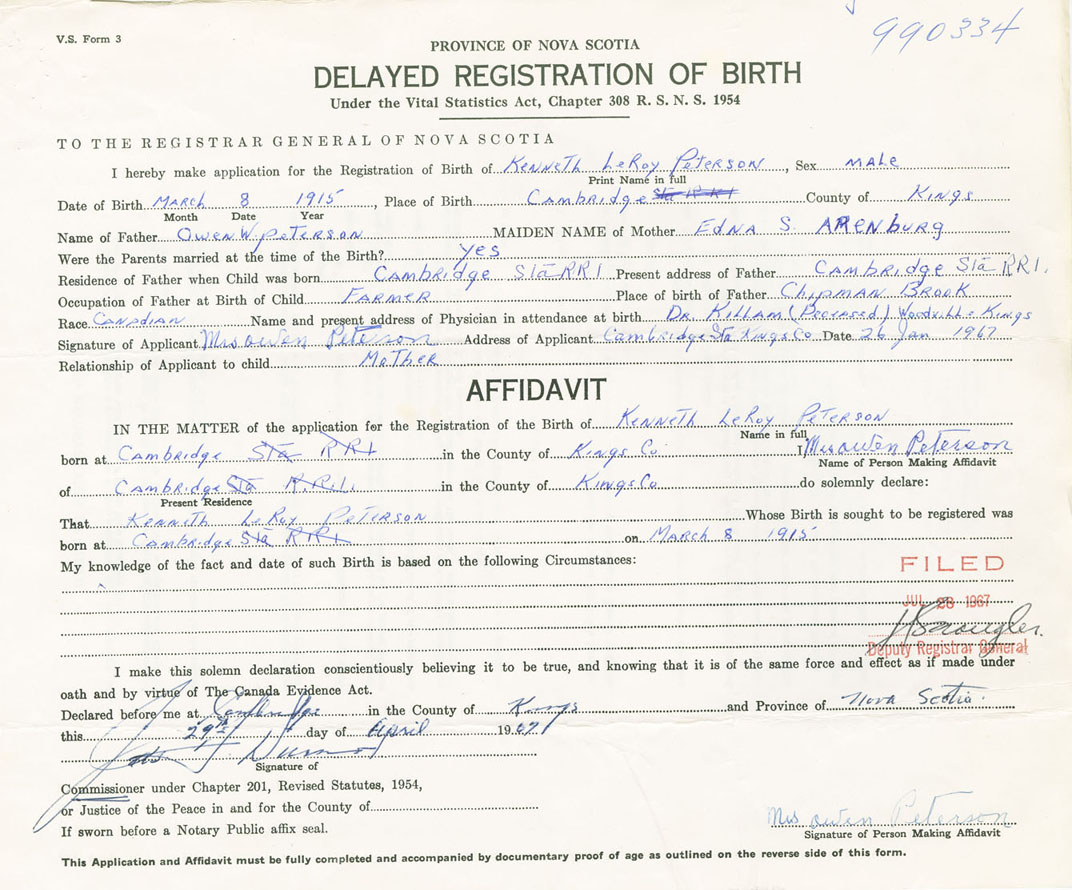 V.S. Form 3
990334
PROVINCE OF NOVA SCOTIA
DELAYED REGISTRATION OF BIRTH
Under the Vital Statistics Act, Chapter 308 R. S. N. S. 1954
TO THE REGISTRAR GENERAL OF NOVA SCOTIA
I hereby make application for the Registration of Birth of Kenneth LeRoy Peterson, Sex Male
Print Name in full
Date of Birth March 8 1915, Place of Birth Cambridge Sta RR1 County of Kings
Month Date Year
Name of Father Owen W Peterson MAIDEN NAME of Mother Edna S. Arenburg
Were the Parents married at the time of the Birth? yes
Residence of Father when Child was born Cambridge Sta RR1 Present address of Father Cambridge Sta RR1.
Occupation of Father at Birth of Child Farmer Place of birth of Father Chipman Brook
Race Canadian Name and present address of Physician in attendance at birth Dr. Killam (Deceased) Woodville Kings
Signature of Applicant Mrs Owen Peterson Address of Applicant Cambridge Sta Kings Co Date 26 Jan 1967
Relationship of Applicant to child Mother
AFFIDAVIT
IN THE MATTER of the application for the Registration of the Birth of Kenneth LeRoy Peterson
Name in full
born at Cambridge Sta RR1 in the County of Kings Co I Mrs Owen Peterson
Name of Person Making Affidavit
of Cambridge Sta R.R.1. in the County of Kings Co do solemnly declare:
Present Residence
That Kenneth LeRoy Peterson Whose Birth is sought to be registered was
born at Cambridge Sta RR1 on March 8 1915
My knowledge of the fact and date of such Birth is based on the following Circumstances:
FILED
JUL 28 1967
Deputy Registrar General
I make this solemn declaration conscientiously believing it to be true, and knowing that it is of the same force and effect as if made under
oath and by virtue of The Canada Evidence Act.
Declared before me at Cambridge in the County of Kings and Province of Nova Scotia.
this 29th day of April 1967
Signature of
Commissioner under Chapter 201, Revised Statutes, 1954,
or Justice of the Peace in and for the County of
If sworn before a Notary Public affix seal.
Mrs Owen Peterson
Signature of Person Making Affidavit
This Application and Affidavit must be fully completed and accompanied by documentary proof of age as outlined on the reverse side of this form.